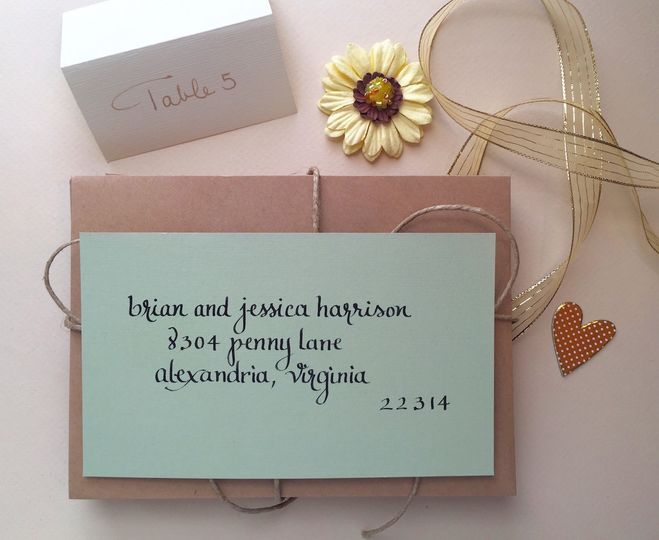 Table 5
brian and jessica harrison
8304 penny lane
alexandria, virginia
22314